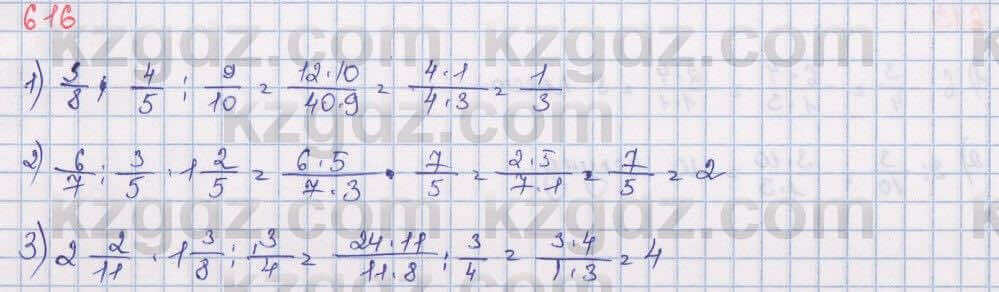 616
kzgdz.com kzgdz.com
1) 3/8 · 4/5 : 9/10 = 12·10/40·9 = 4·1/4·3 = 1/3
kzgdz.com
2) 6/7 : 3/5 · 1 2/5 = 6·5/7·3 · 7/5 = 2·5/7·1 · 7/5 = 2
kzgdz.com kzgdz.com
3) 2 2/11 · 1 3/8 : 3/4 = 24·11/11·8 : 3/4 = 3·4/1·3 = 4
kzgdz.com